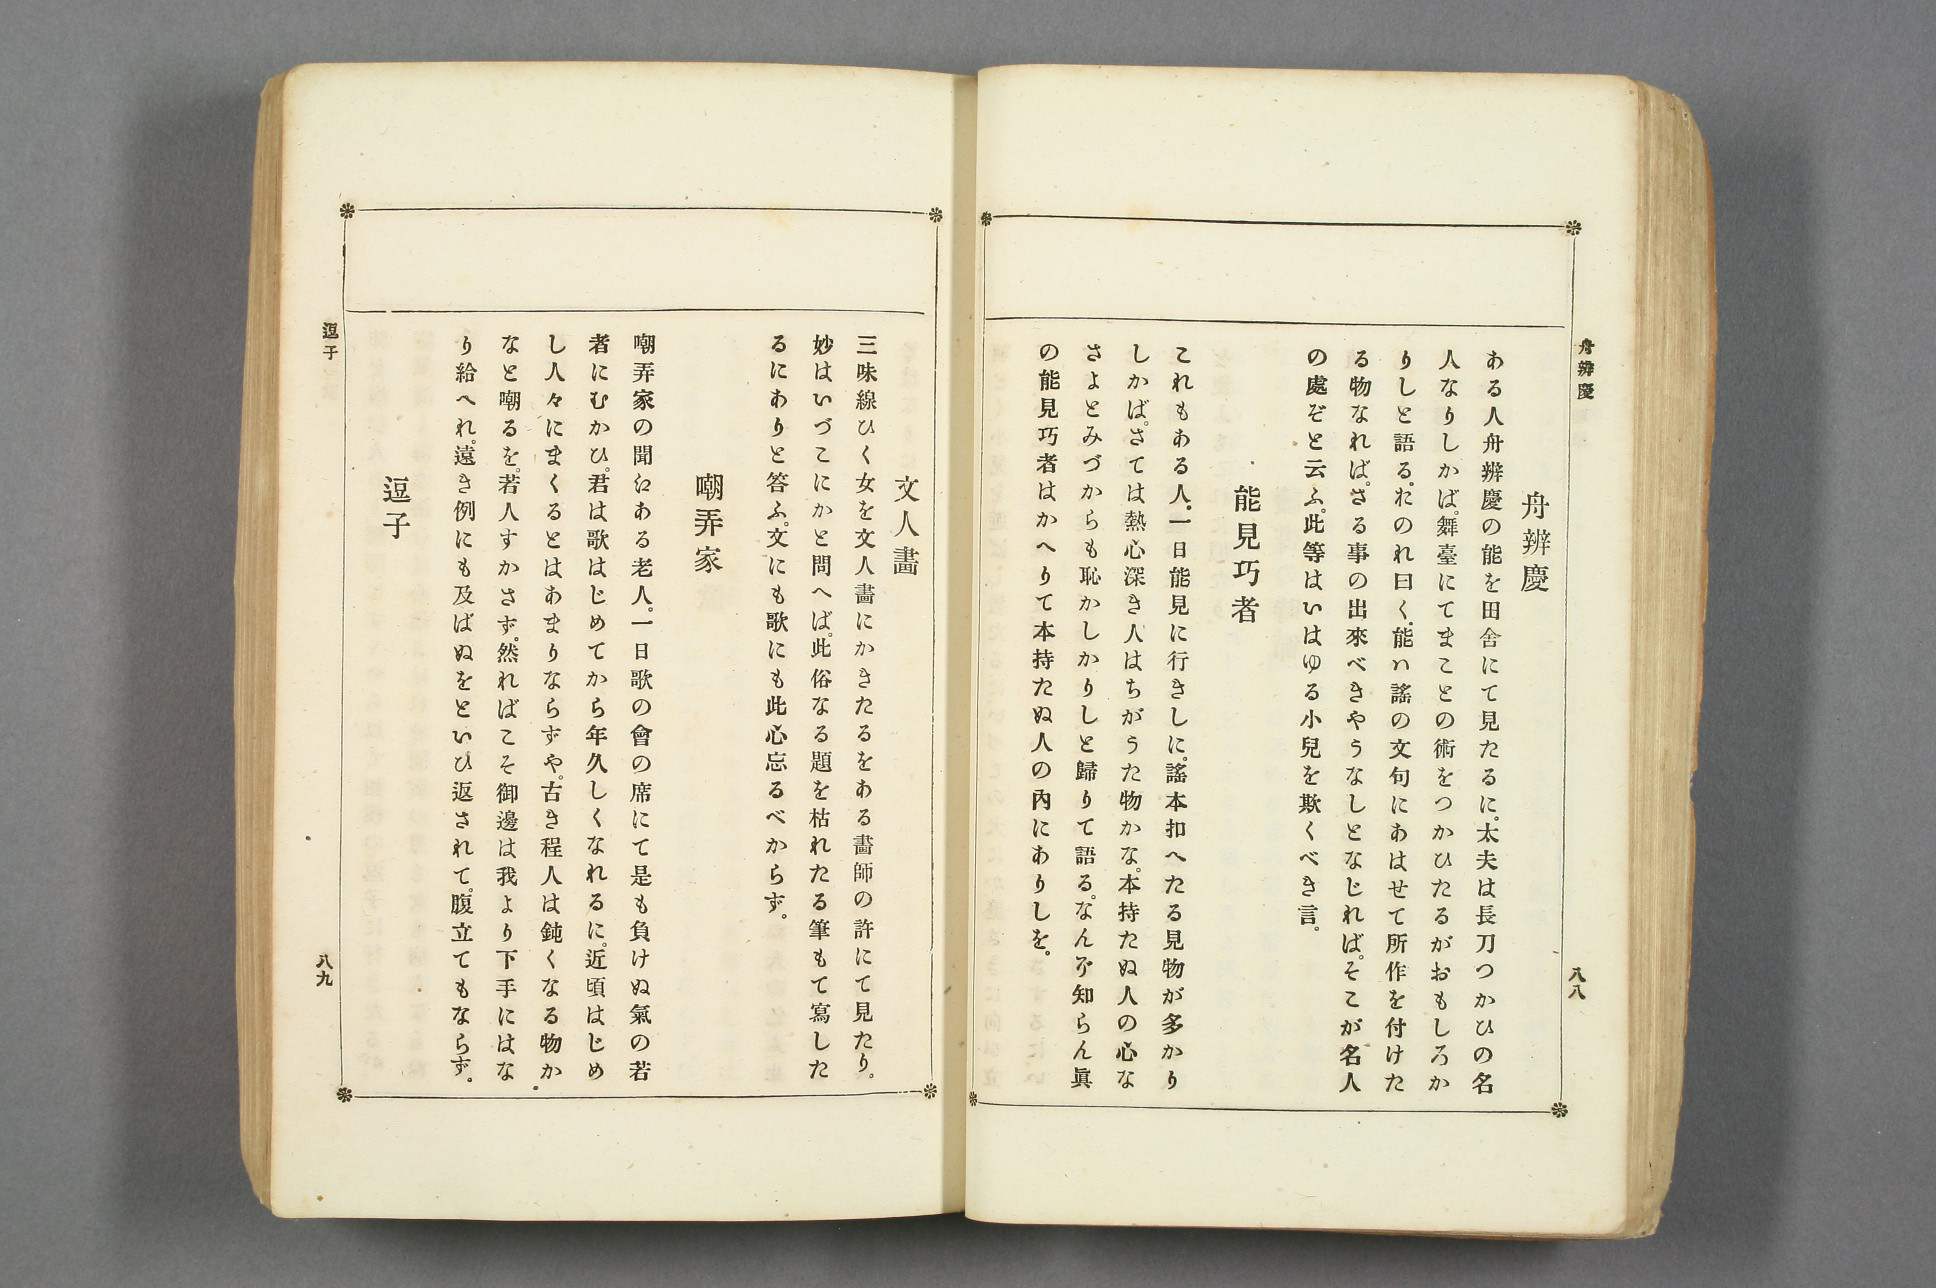 舟辨慶
八八
舟辨慶
ある人舟辨慶の能を田舍にて見たるに。太夫は長刀つかひの名
人なりしかば。舞臺にてまことの術をつかひたるがおもしろか
りしと語る。おのれ曰く。能ハ謠の文句にあはせて所作を付けた
る物なれば。さる事の出來べきやうなしとなじれば。そこが名人
の處ぞと云ふ。此等はいはゆる小兒を欺くべき言。
能見巧者
これもある人。一日能見に行きしに。謠本扣へたる見物が多かり
しかば。さては熱心深き人はちがうた物かな。本持たぬ人の心な
さよとみづからも恥かしかりしと歸りて語る。なんぞ知らん眞
の能見巧者はかへりて本持たぬ人の內にありしを。
文人畵
三味線ひく女を文人畵にかきたるをある畵師の許にて見たり。
妙はいづこにかと問へば。此俗なる題を枯れたる筆もて寫した
るにありと答ふ。文にも歌にも此心忘るべからず。
嘲弄家
嘲弄家の聞江ある老人。一日歌の會の席にて是も負けぬ氣の若
者にむかひ。君は歌はじめてから年久しくなれるに。近頃はじめ
し人々にまくるとはあまりならずや。古き程人は鈍くなる物か
なと嘲るを。若人すかさず。然ればこそ御邊は我より下手にはな
り給へれ。遠き例にも及ばぬをといひ返されて。腹立てもならず。
逗子
逗子
八九